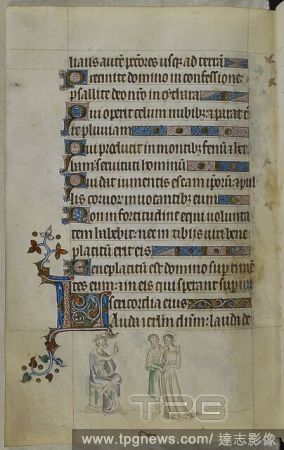 lians autem peccatores usq; ad terram
Precinite domino in confessione
psallite deo nostro in cythara
Qui operit celum nubibus & parat ter
re pluuiam
Qui producit in montibus fenum & her
bam seruituti hominum
Qui dat iumentis escam ipsorum & pul
lis coruorum inuocantibus eum
Non in fortitudine equi uolunta
tem habebit nec in tibiis uiri bene
placitum erit eis
Beneplacitum est domino super timen
tes eum & in eis qui sperant super mi
sericordia eius
Lauda ierlm dnum: lauda de
TPG
www.tpgnews.com/達志影像